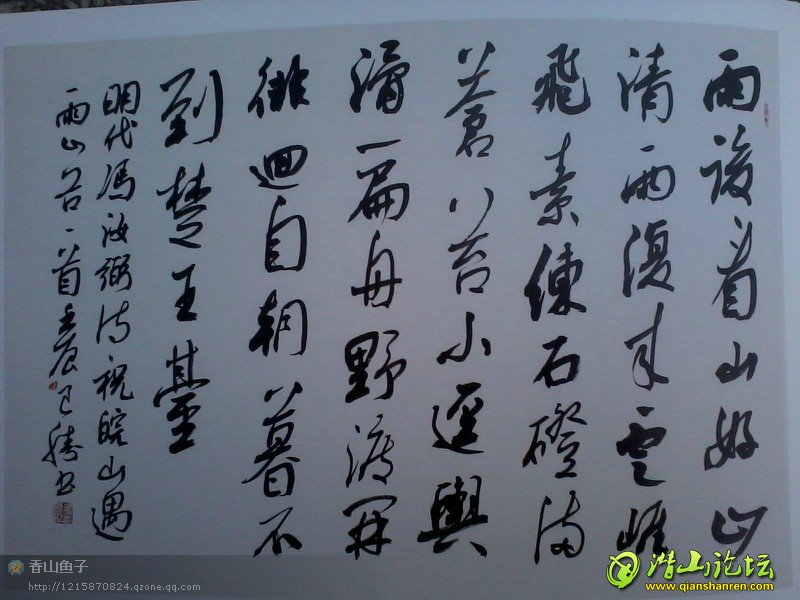 雨後看山好山
清雨復来雲崕
飛素練石磴满
蒼苔小逕輿
扁舟野渡開
徘迴自朝暮不
到楚王臺
明代馮汝弼诗祝皖山遇
雨山谷一首壬辰書
香山鱼子
http://1215870824.qzone.qq.com
潜山论坛
www.qianshanren.com